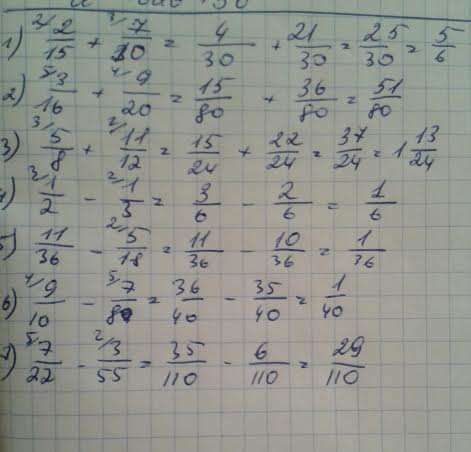 1) 2/15 + 7/10 = 4/30 + 21/30 = 25/30 = 5/6
2) 3/16 + 9/20 = 15/80 + 36/80 = 51/80
3) 5/8 + 11/12 = 15/24 + 22/24 = 37/24 = 1 13/24
4) 1/2 - 1/3 = 3/6 - 2/6 = 1/6
5) 11/36 - 5/18 = 11/36 - 10/36 = 1/36
6) 9/10 - 7/8 = 36/40 - 35/40 = 1/40
7) 7/22 - 3/55 = 35/110 - 6/110 = 29/110